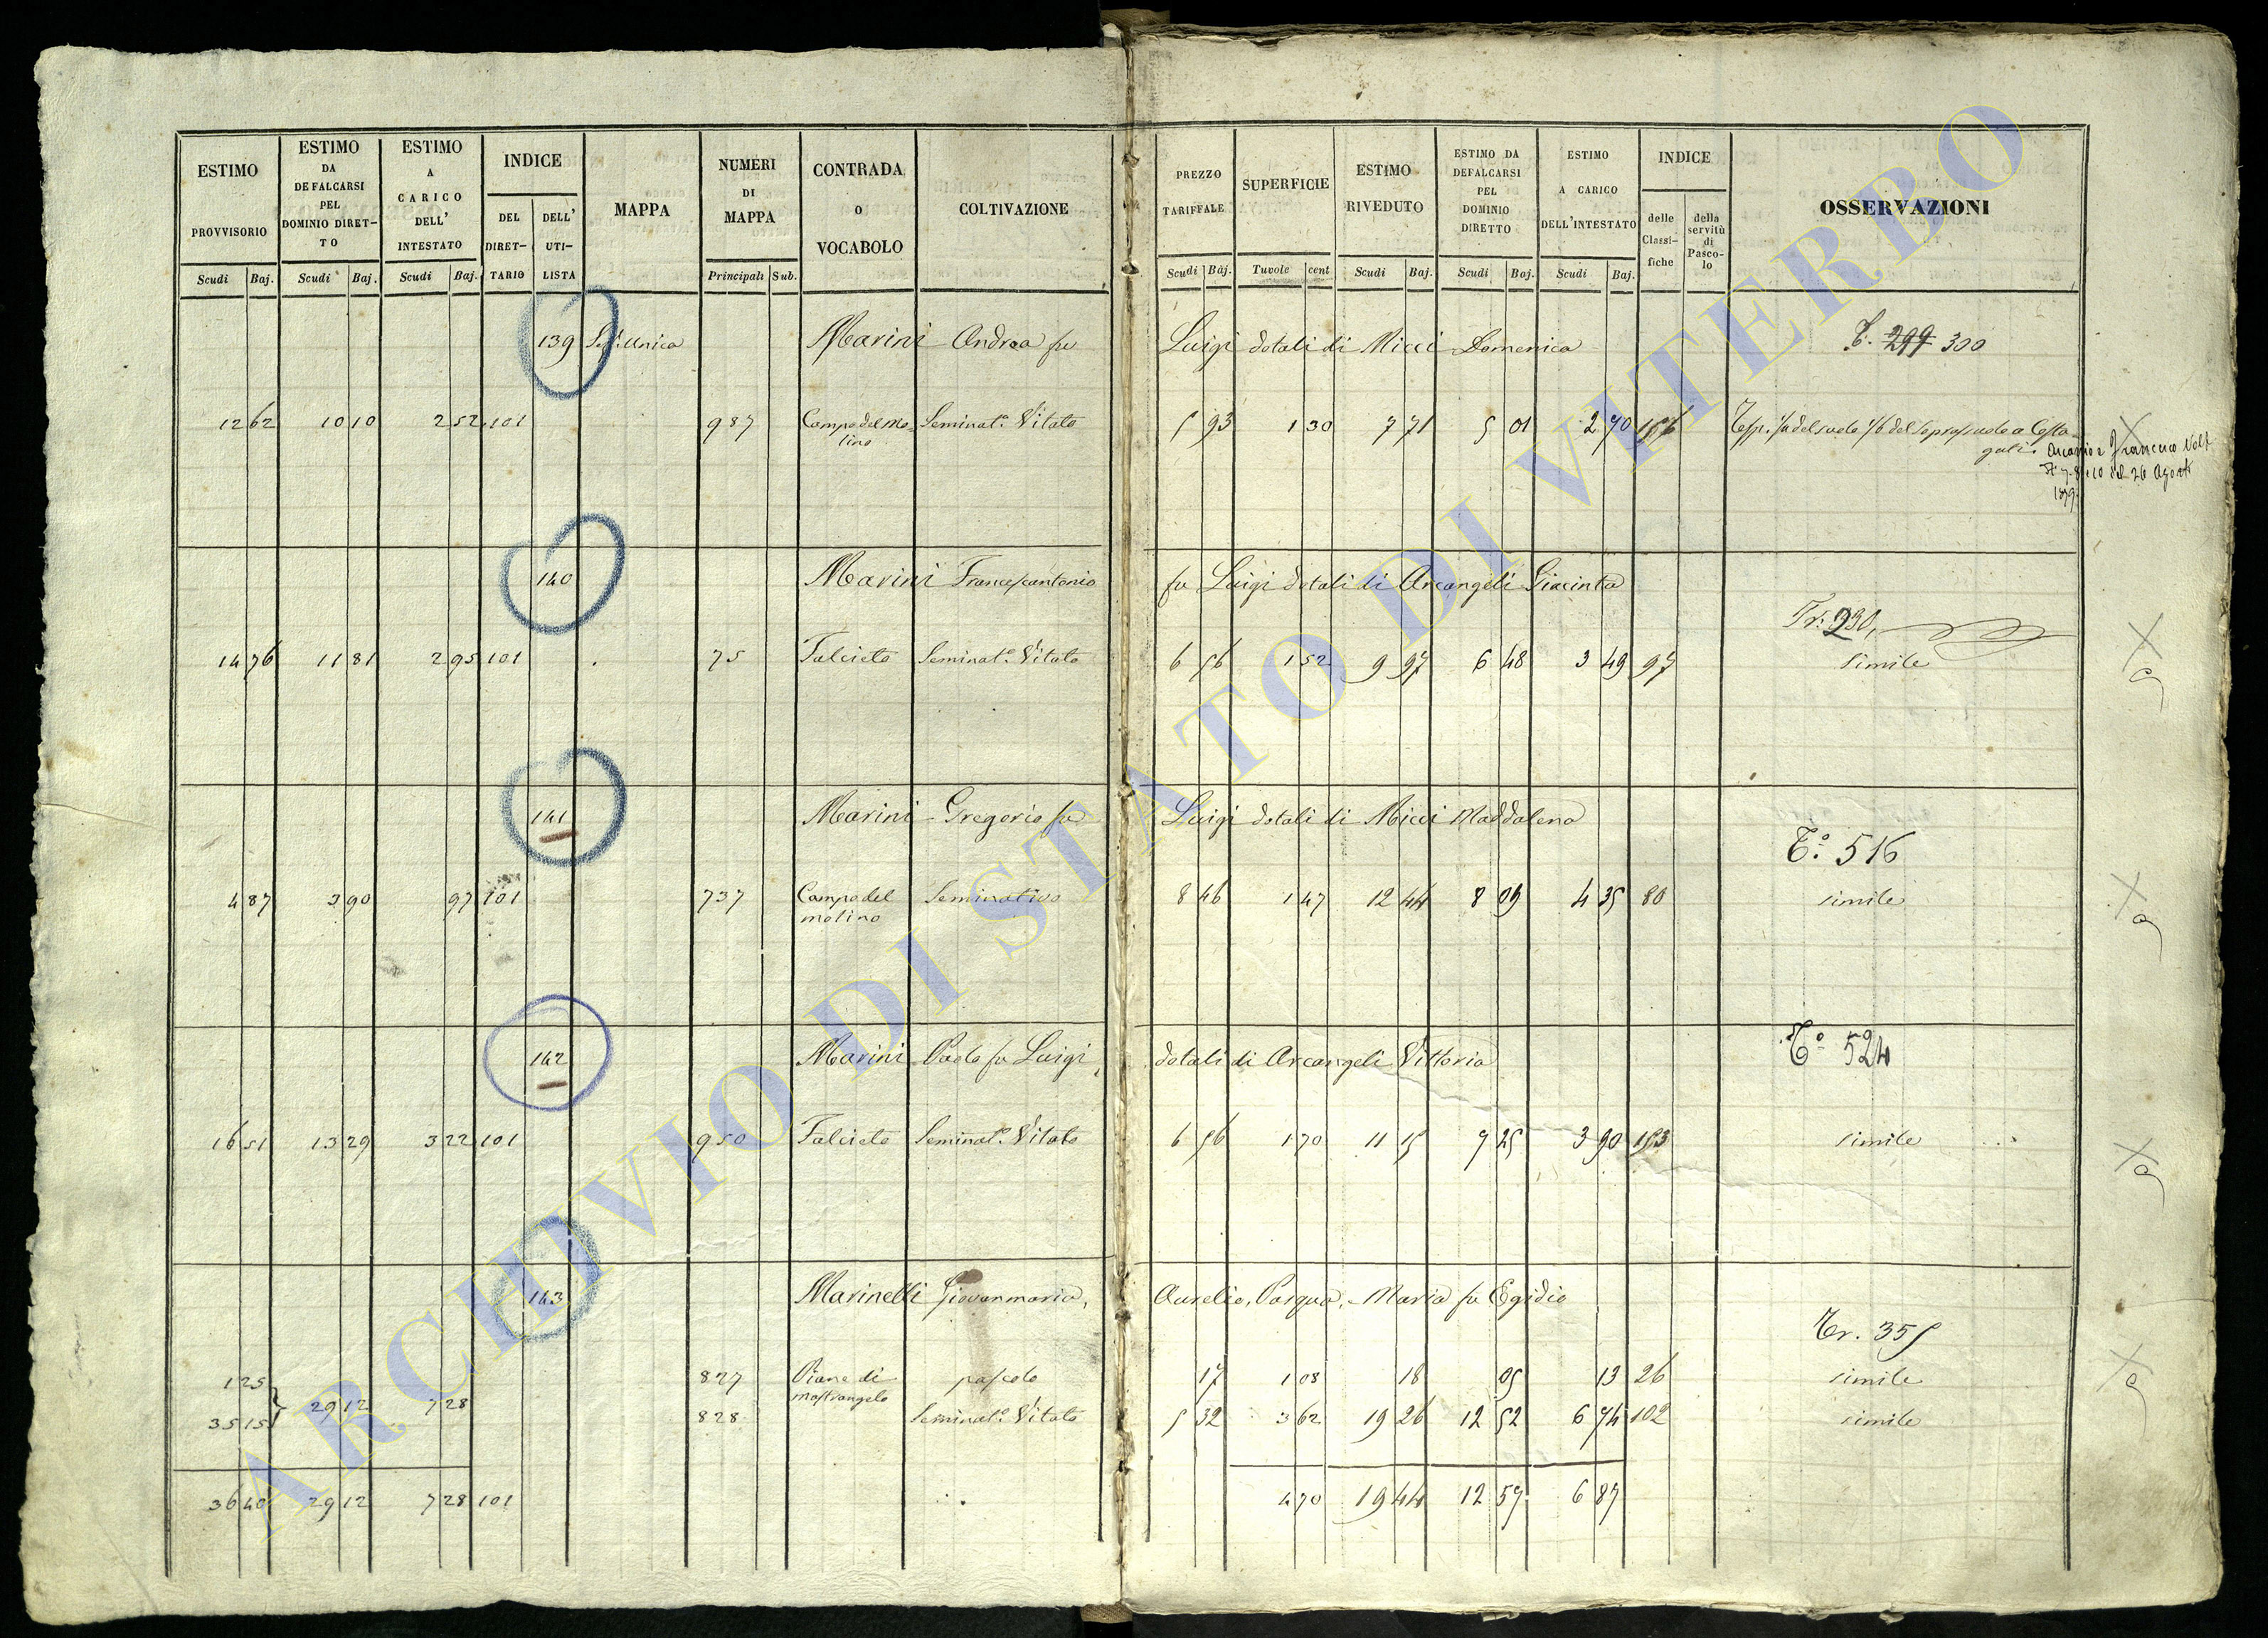 ESTIMO PROVVISORIO
Scudi Baj.
ESTIMO DA DEFALCARSI PEL DOMINIO DIRETTO
Scudi Baj.
ESTIMO A CARICO DELL' INTESTATO
Scudi Baj.
INDICE
DEL DIRETTARIO
DELL' UTILISTA
MAPPA
NUMERI DI MAPPA
Principali Sub.
CONTRADA O VOCABOLO
COLTIVAZIONE
PREZZO TARIFFALE
Scudi Baj.
SUPERFICIE
Tavole cent
ESTIMO RIVEDUTO
Scudi Baj.
ESTIMO DA DEFALCARSI PEL DOMINIO DIRETTO
Scudi Baj.
ESTIMO A CARICO DELL'INTESTATO
Scudi Baj.
INDICE
delle Classifiche
della servitù di Pascolo
OSSERVAZIONI
139 Sez. Unica Marini Andrea fu Luigi dotali di Micci Domenica T. 299 300
12 62 10 10 2 52 101 987 Campo del Molino Seminat.o Vitato 5 93 1 30 7 71 5 01 2 70 156
del suolo 1/6 del soprassuolo a
Francesco Volt.
26 Agosto
1879
140 Marini Francescantonio fu Luigi dotali di Arcangeli Giacinta
Tr. 230,
14 76 11 81 2 95 101 75 Falcieto Seminat.o Vitato 6 56 1 52 9 97 6 48 3 49 97 simile
141 Marini Gregorio fu Luigi dotali di Micci Maddalena
T.o 516
4 87 3 90 97 101 737 Campo del molino Seminativo 8 46 1 47 12 44 8 09 4 35 80 simile
142 Marini Paolo fu Luigi, dotali di Arcangeli Vittoria T.o 524
16 51 13 29 3 22 101 950 Falcieto Seminat.o Vitato 6 56 1 70 11 15 7 25 3 90 153 simile
143 Marinelli Giovanmaria, Aurelio, Pasqua, Maria fu Egidio
Tr. 355
1 25 827 Piane di mastrangelo pascolo 17 1 08 18 05 13 26 simile
35 15 29 12 7 28 828 Seminat.o Vitato 5 32 3 62 19 26 12 52 6 74 102 simile
36 40 29 12 7 28 101 4 70 19 44 12 57 6 87
ARCHIVIO DI STATO DI VITERBO